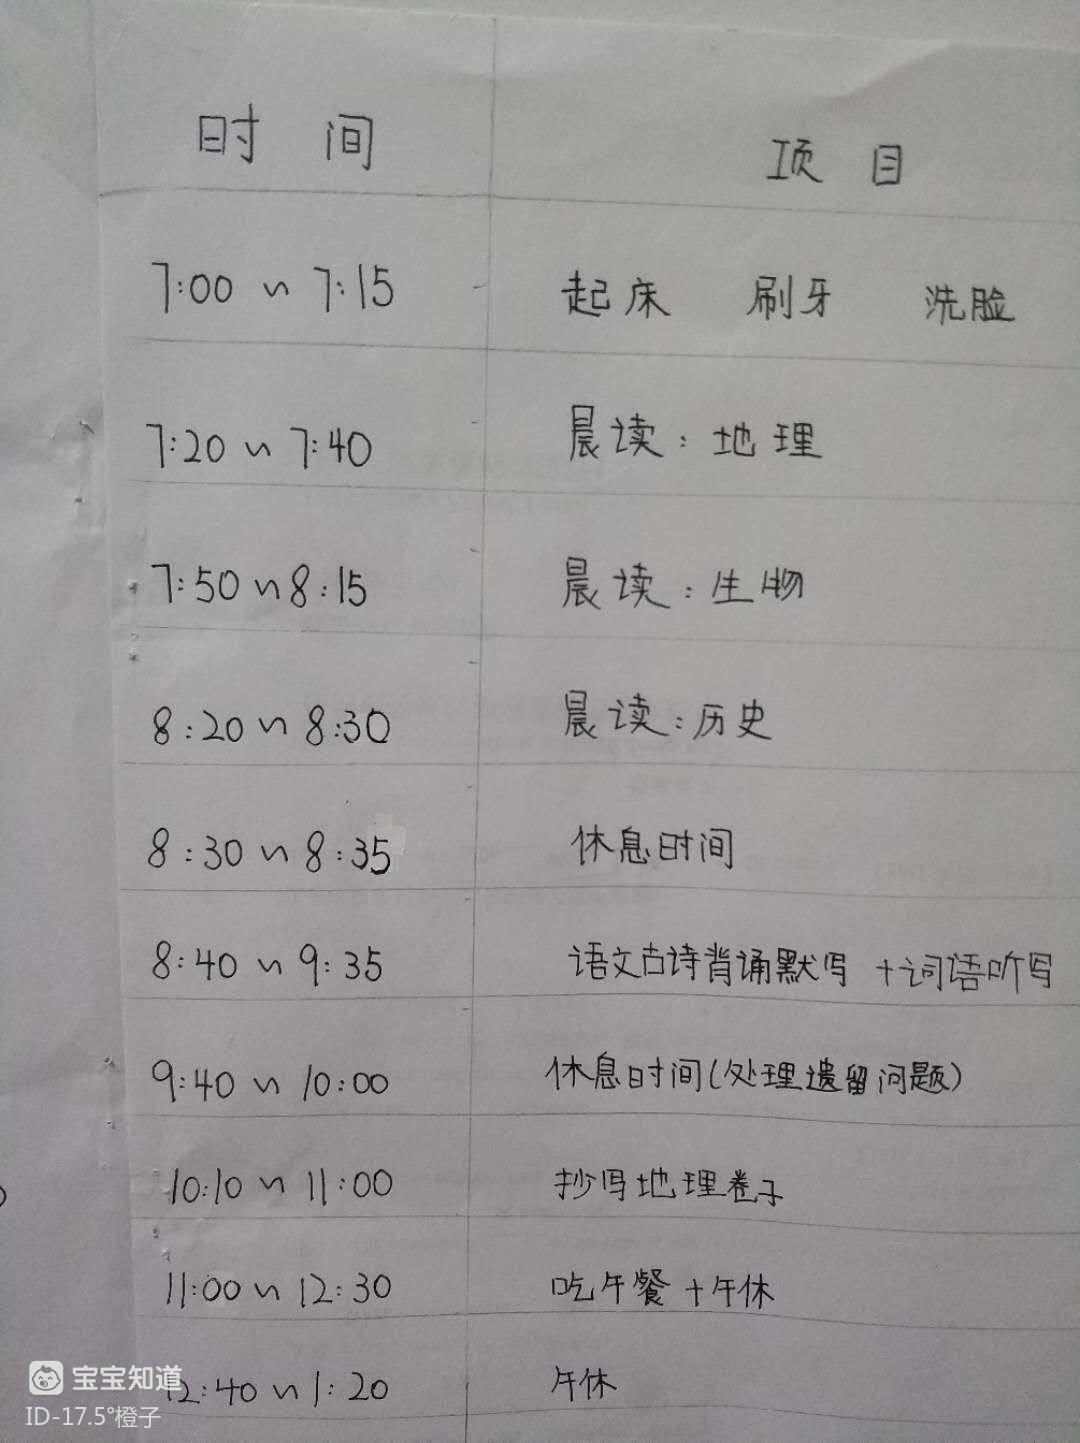 时 间 项 目
7:00 ~ 7:15 起床 刷牙 洗脸
7:20 ~ 7:40 晨读：地理
7:50 ~ 8:15 晨读：生物
8:20 ~ 8:30 晨读：历史
8:30 ~ 8:35 休息时间
8:40 ~ 9:35 语文古诗背诵默写 +词语听写
9:40 ~ 10:00 休息时间(处理遗留问题)
10:10 ~ 11:00 抄写地理卷子
11:00 ~ 12:30 吃午餐 +午休
12:40 ~ 1:20 午休
宝宝知道
ID-17.5°橙子